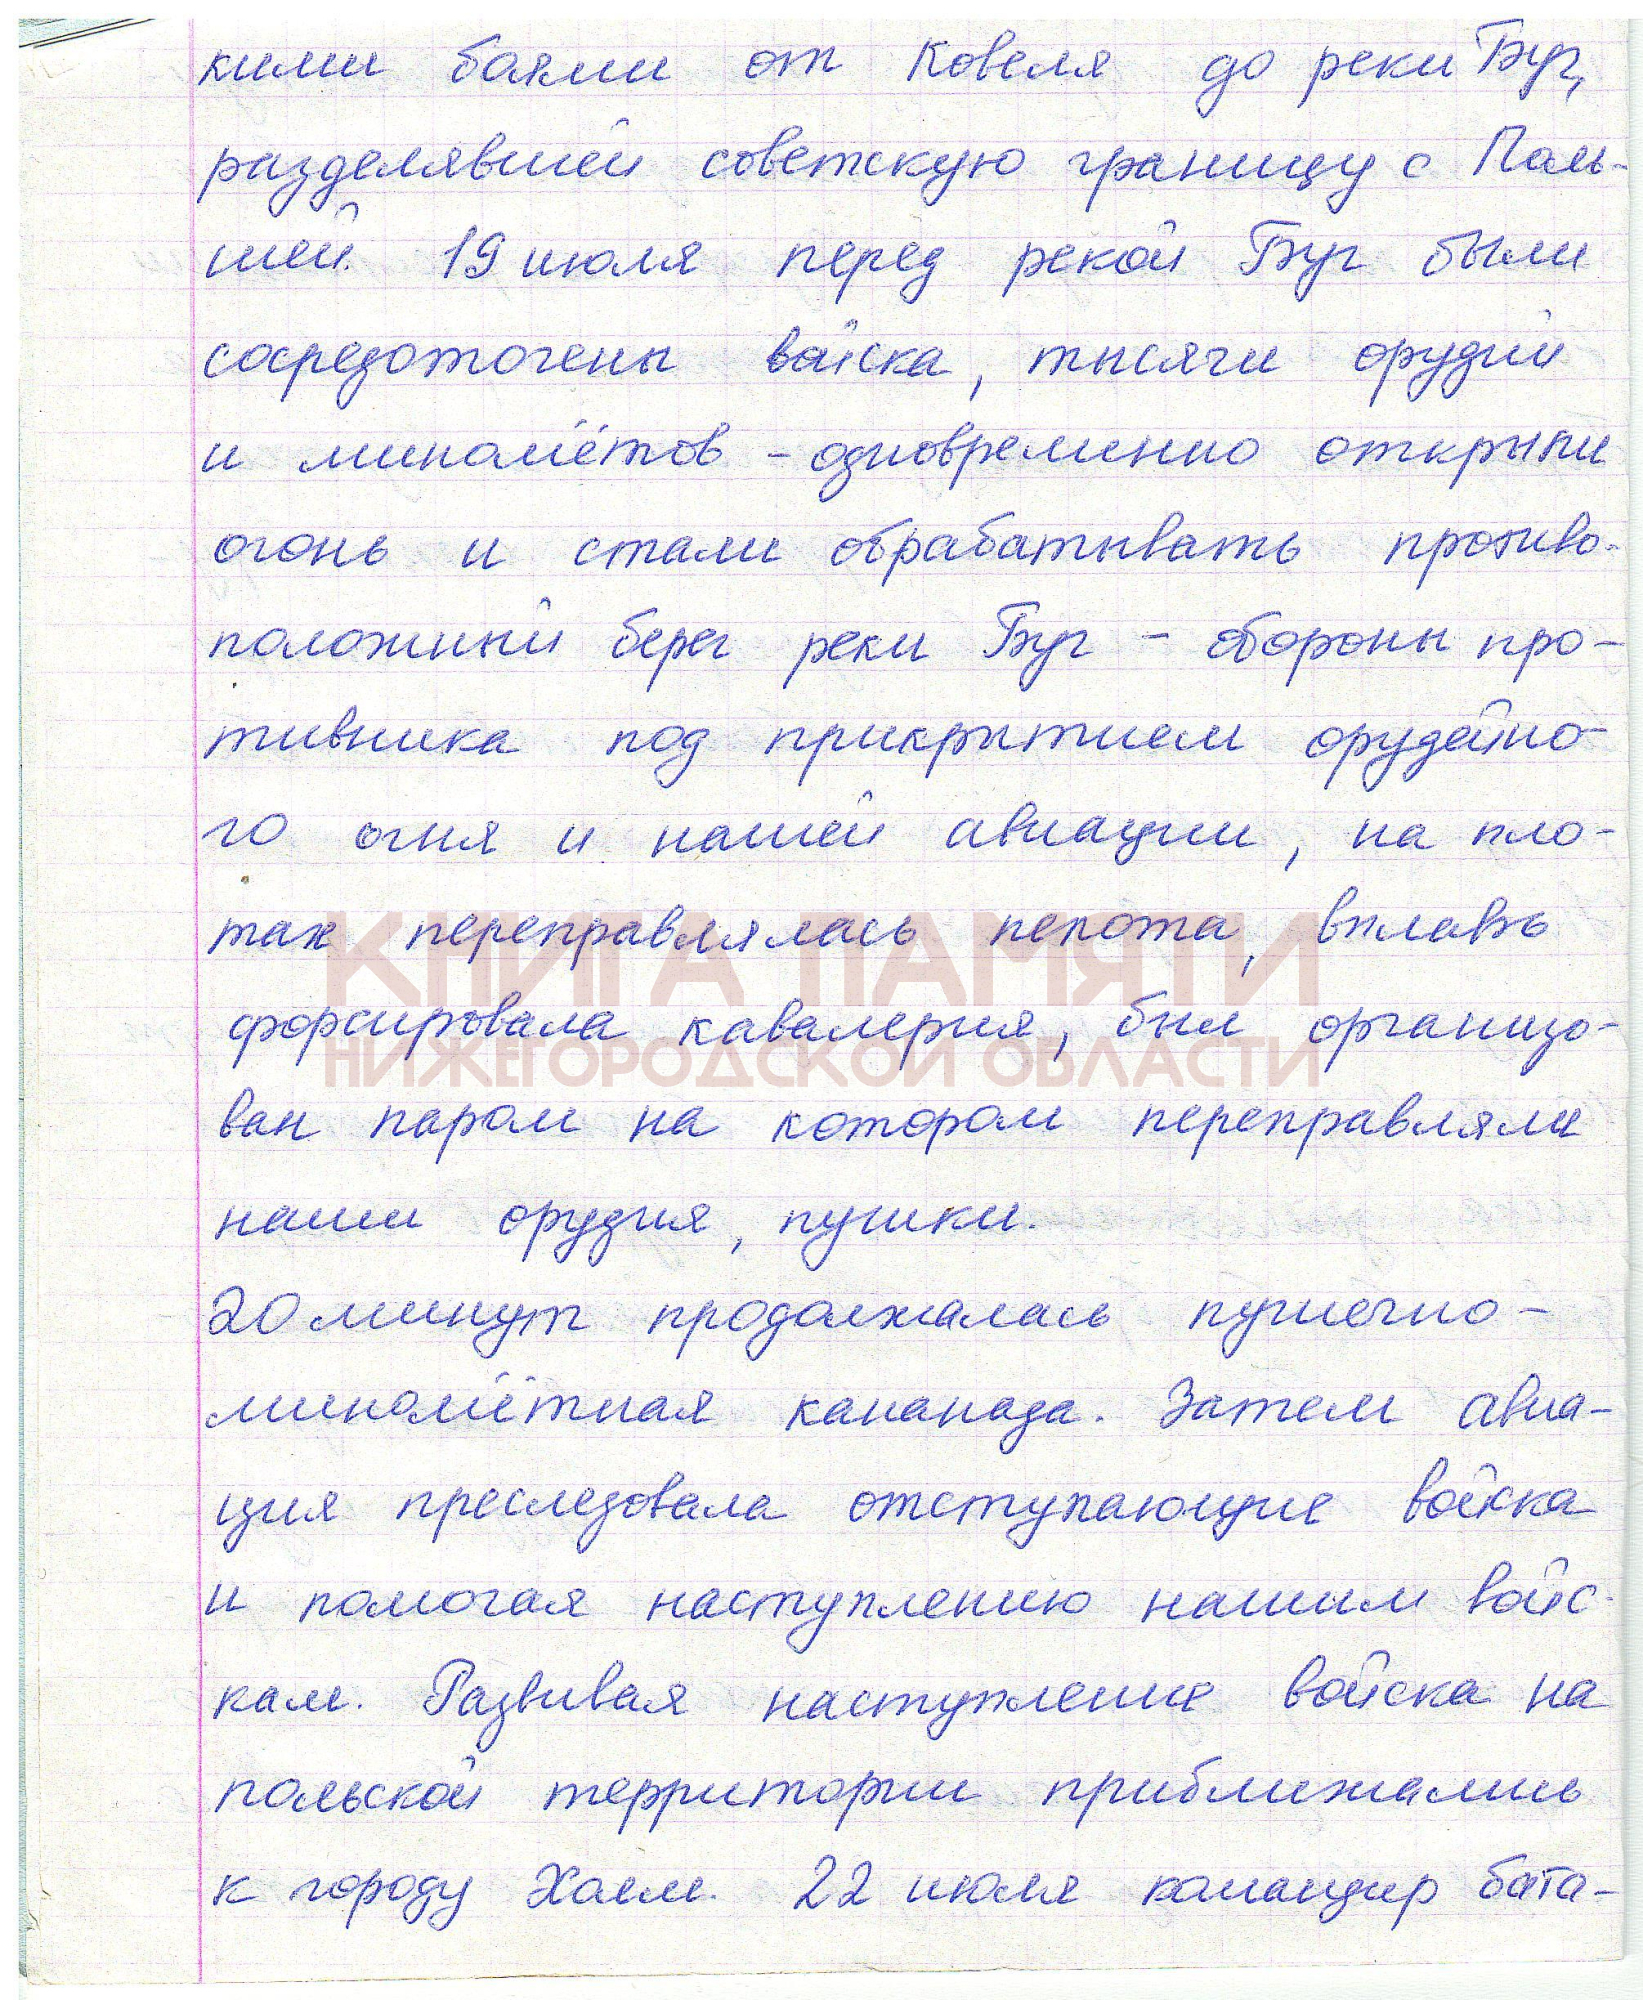 кими боями от Ковеля до реки Буг,
разделявшей советскую границу с Поль-
шей. 19 июля перед рекой Буг были
сосредоточены войска, тысячи орудий
и миномётов - одновременно открыли
огонь и стали обрабатывать противо-
положный берег реки Буг - обороны про-
тивника под прикрытием орудейно-
го огня и нашей авиации, на пло-
тах переправлялась пехота, вплавь
КНИГА ПАМЯТИ
форсировала кавалерия, был организо-
НИЖЕГОРОДСКОЙ ОБЛАСТИ
ван паром на котором переправляли
наши орудия, пушки.
20 минут продолжалась пушечно-
миномётная канонада. Затем авиа-
ция преследовала отступающие войска
и помогая наступлению нашим войс-
кам. Развивая наступление войска на
польской территории приближались
к городу Холм. 22 июля командир бата-